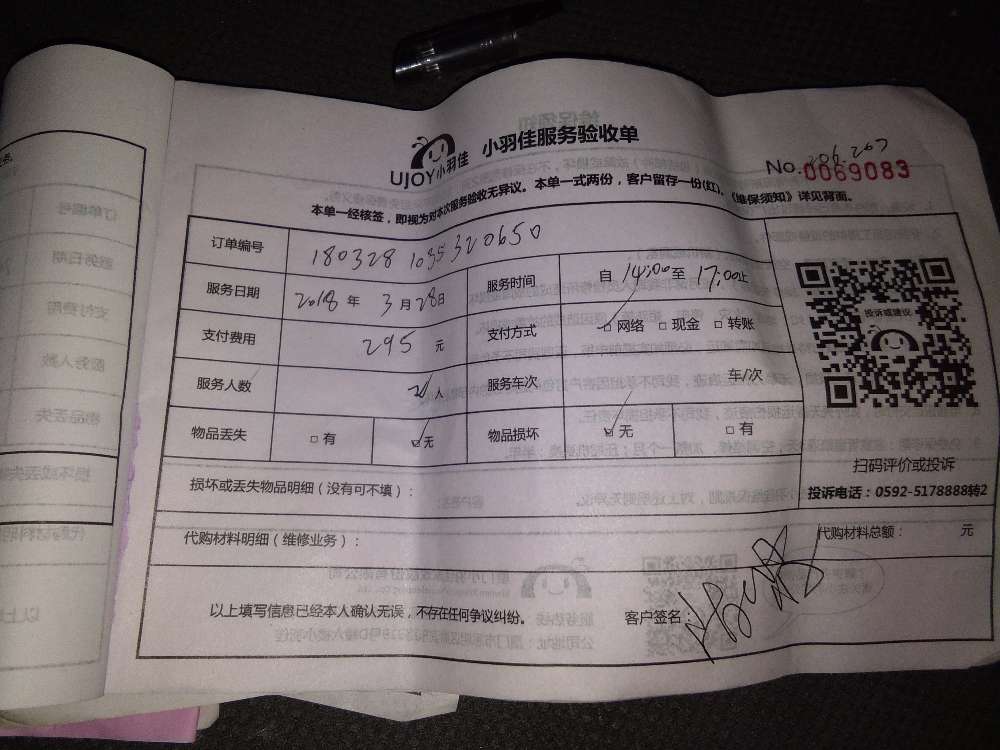 UJOY小羽佳 小羽佳服务验收单
206.207
No. 0069083
本单一经核签，即视为对本次服务验收无异议。本单一式两份，客户留存一份(红)。《维保须知》详见背面。
订单编号 180328 1035320650
服务日期 2018 年 3 月 28 日 服务时间 自 14:00 至 17:00 止
支付费用 295 元 支付方式 ☑ 网络 □ 现金 □ 转账
服务人数 2 人 服务车次 车/次
物品丢失 □ 有 ☑ 无 物品损坏 ☑ 无 □ 有
投诉或建议
扫码评价或投诉
投诉电话：0592-5178888转2
损坏或丢失物品明细（没有可不填）：
代购材料明细（维修业务）： 代购材料总额： 元
以上填写信息已经本人确认无误，不存在任何争议纠纷。 客户签名：